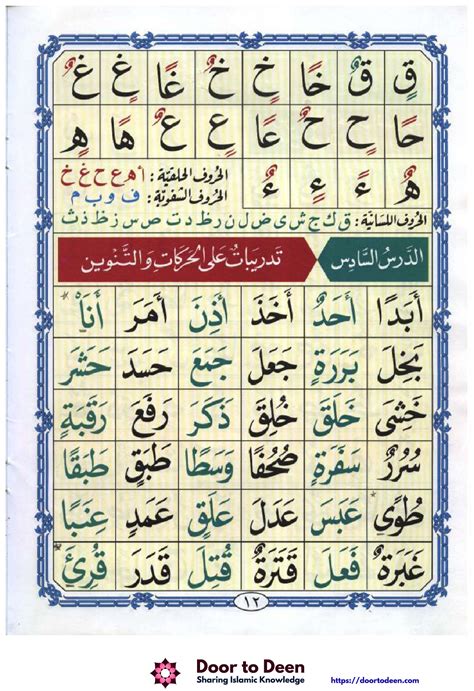 قٍ قٌ خًا خٍ خٌ غًا غٍ غٌ
حًا حٍ حٌ عًا عٍ عٌ هًا هٍ
هٌ ءً ءٍ ءٌ
الحُرُوفُ الحَلْقِيَّة : أ هـ ع ح غ خ
الحُرُوفُ الشَّفَوِيَّة : ف و ب م
الحُرُوفُ اللِّسَانِيَّة : ق ك ج ش ي ض ل ن ر ط د ت ص س ز ظ ذ ث
الدَّرسُ السَّادِس تَدْرِيبَاتٌ عَلَى الحَرَكَاتِ وَالتَّنْوِين
أَبَدًا أَحَدٌ أَخَذَ أَذِنَ أَمَرَ أَنَا۠
بَخِلَ بَرَرَةٍ جَعَلَ جَمَعَ حَسَدَ حَشَرَ
خَشِيَ خَلَقَ خُلِقَ ذَكَرَ رَفَعَ رَقَبَةٍ
سُرُرٌ سَفَرَةٍ صُحُفًا وَسَطًا طَبَقٍ طَبَقًا
طُوًى عَبَسَ عَدَلَ عَلَقٍ عَمَدٍ عِنَبًا
غَبَرَةٌ فَعَلَ قَتَرَةٌ قُتِلَ قَدَرَ قُرِئَ
١٢
Door to Deen
Sharing Islamic Knowledge
https://doortodeen.com